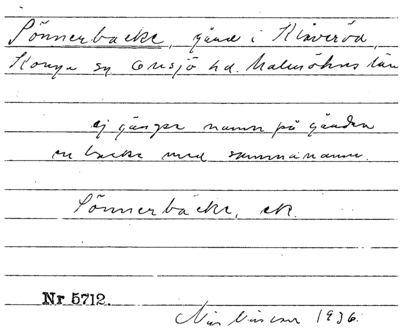 Sönnerbacke, gård i Klåveröd,
Konga sn Onsjö hd. Malmöhus län
ej gängse namn på gården
en backe med samma namn.
Sönnerbacke, ek.
Nr 5712.
Nils Nilsson 1936.